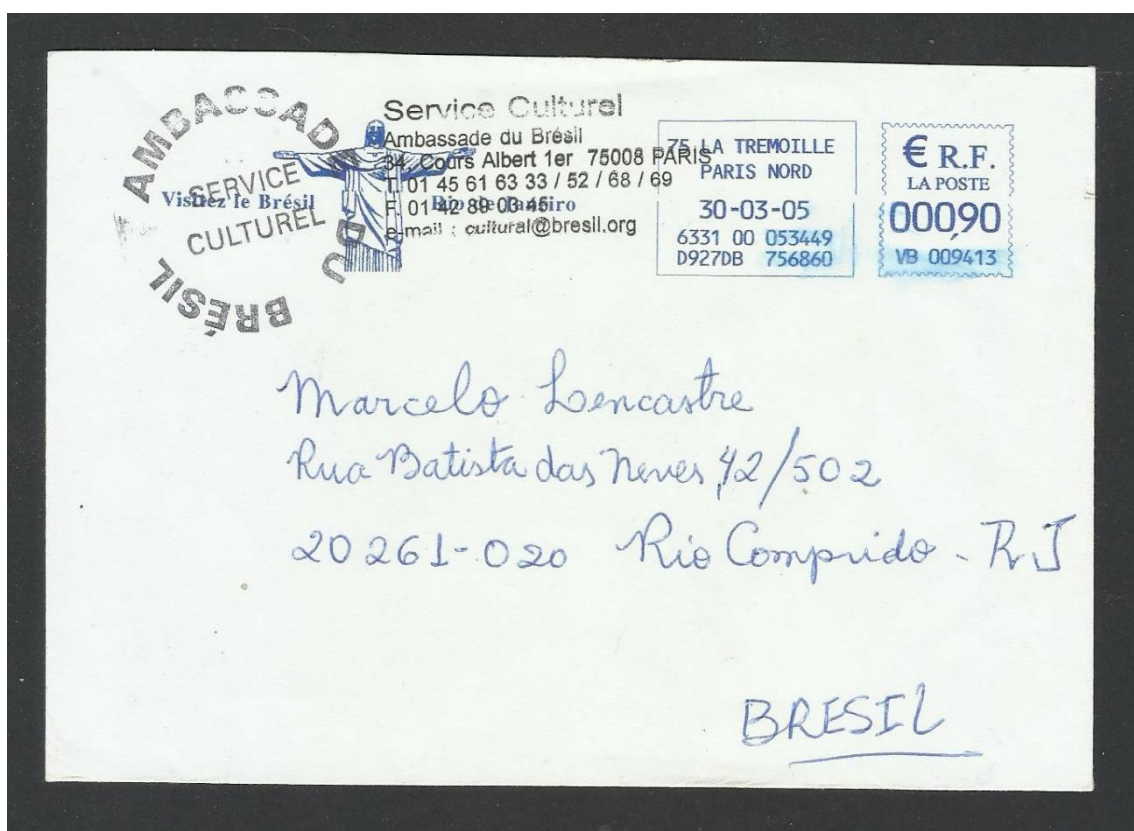 AMBASSADE DU BRÉSIL
SERVICE
CULTUREL
Visitez le Brésil
Rio de Janeiro
Service Culturel
Ambassade du Brésil
34, Cours Albert 1er 75008 PARIS
T 01 45 61 63 33 / 52 / 68 / 69
F 01 42 89 03 45
e-mail : cultural@bresil.org
75 LA TREMOILLE
PARIS NORD
30-03-05
6331 00 053449
D927DB 756860
€ R.F.
LA POSTE
000,90
VB 009413
Marcelo Lencastre
Rua Batista das Neves, 42/502
20261-020 Rio Comprido - RJ
BRESIL